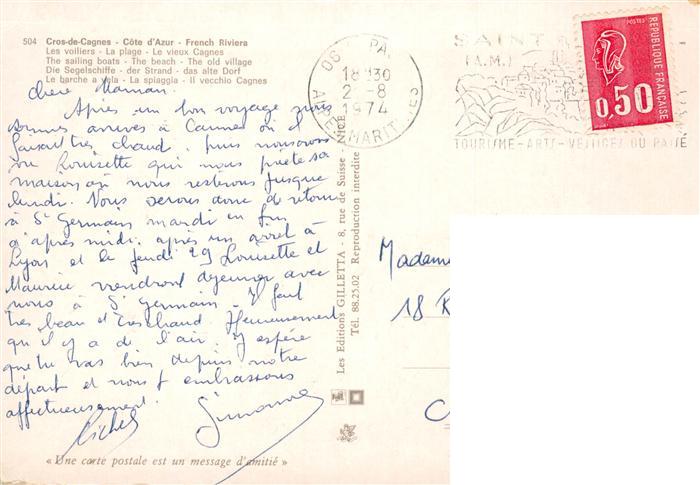 504 Cros-de-Cagnes - Côte d'Azur - French Riviera
Les voiliers - La plage - Le vieux Cagnes
The sailing boats - The beach - The old village
Die Segelschiffe - der Strand - das alte Dorf
Le barche a vela - La spiaggia - Il vecchio Cagnes
Chère Maman.
Après un bon voyage nous
sommes arrivés à Cannes où il
faisait très chaud. puis nous avons
vu Louisette qui nous prête sa
maison où nous resterons jusque
lundi. Nous serons donc de retour
à St Germain mardi en fin
d'après midi. après un arrêt à
Lyon et le jeudi 29 Louisette et
Maurice viendront déjeuner avec
nous à St Germain. Il fait
très beau et très chaud. Heureusement
qu'il y a de l'air. J'espère
que tu vas bien depuis notre
départ et nous t'embrassons
affectueusement.
Simonne
« Une carte postale est un message d'amitié »
Les Editions GILLETTA - 8, rue de Suisse - NICE
Tél. 88.25.02 Reproduction interdite
18 H30
-8
1974
SAINT
(A.M.)
TOURISME-ARTS-VESTIGES DU PASSÉ
POSTES
RÉPUBLIQUE FRANÇAISE
0,50
Madame
18 R